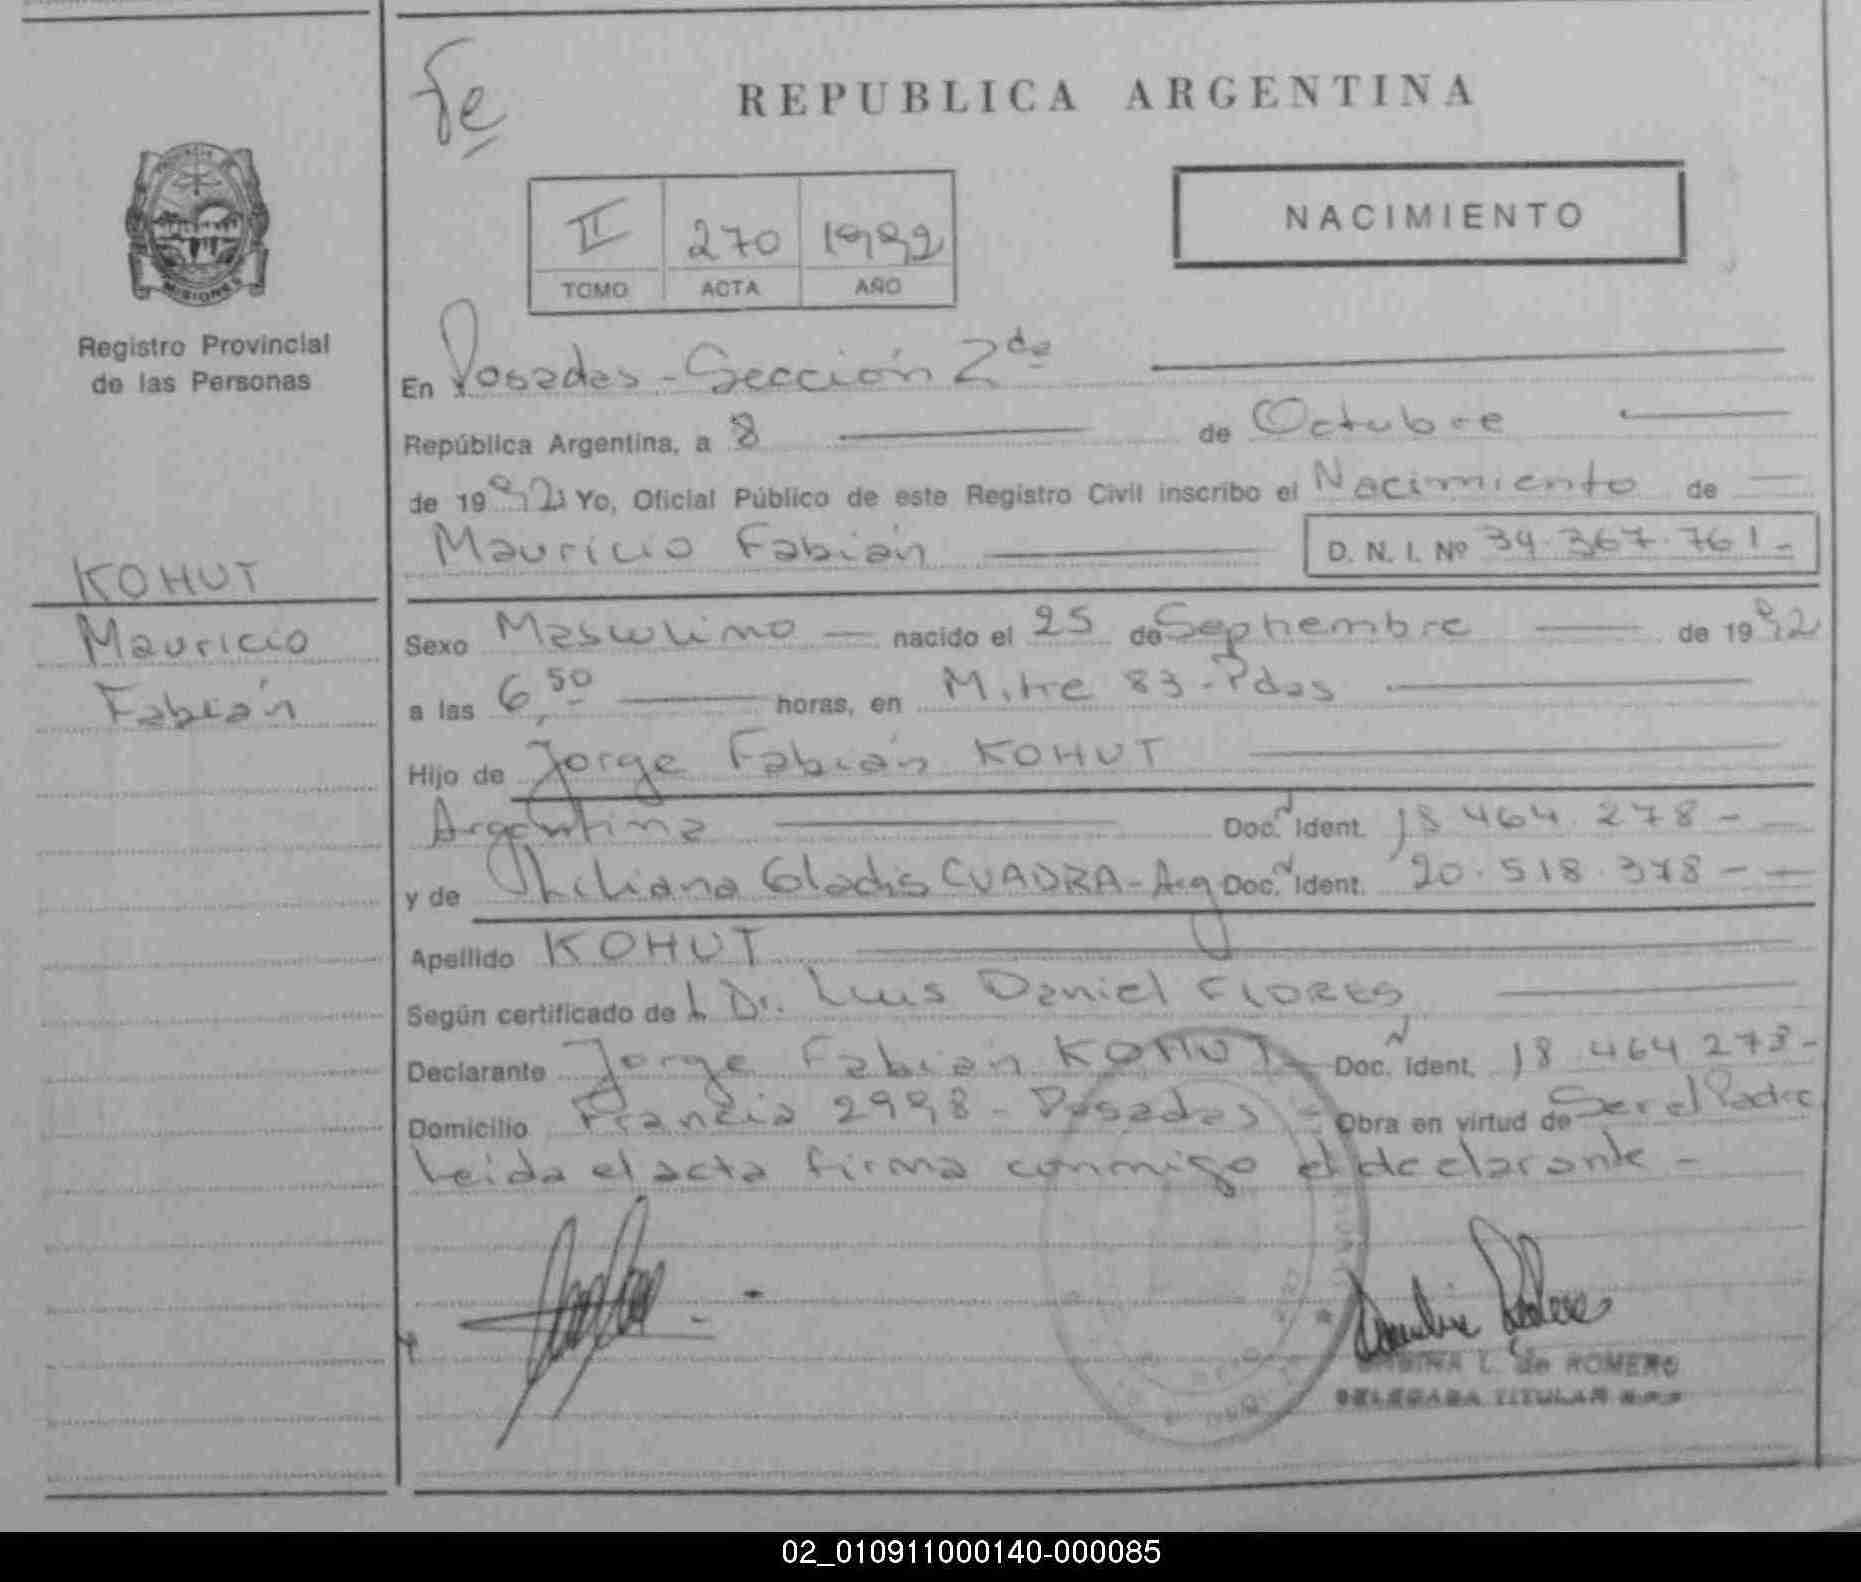 Fe
REPUBLICA ARGENTINA
MISIONES
II 270 1992
TOMO ACTA AÑO
NACIMIENTO
Registro Provincial
de las Personas
En Posadas - Sección 2da
República Argentina, a 8 de Octubre
de 1992 Yo, Oficial Público de este Registro Civil inscribo el Nacimiento de
Mauricio Fabián D. N. I. Nº 34.367.761-
KOHUT
Mauricio
Fabián
Sexo Masculino nacido el 25 de Septiembre de 1992
a las 6,50 horas, en Mitre 83 - Pdas
Hijo de Jorge Fabián KOHUT
Argentina Doc. N Ident. 18.464.278-
y de Liliana Gladis CUADRA - Arg Doc. N Ident. 20.518.378-
Apellido KOHUT
Según certificado de Dr. Luis Daniel FLORES
Declarante Jorge Fabián KOHUT Doc. N Ident. 18.464.278-
Domicilio Francia 2998 - Posadas - Obra en virtud de Ser el Padre
Leida el acta firma conmigo el declarante -
L. de ROMERO
DELEGADA TITULAR
02_010911000140-000085